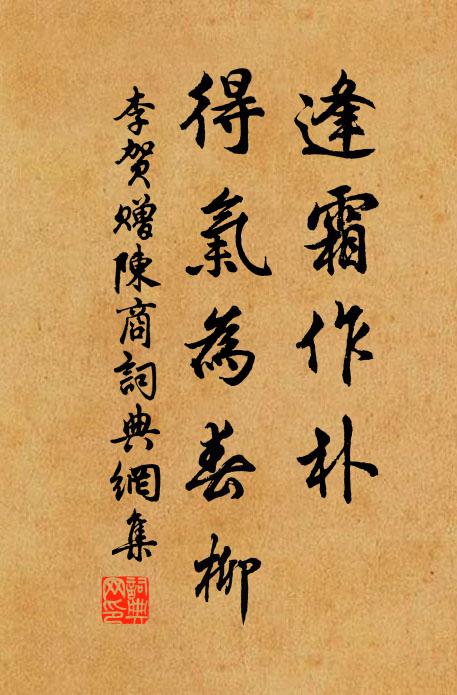 逢霜作朴
得氣為春柳
李贺赠陳商詞典網集
詞典网印